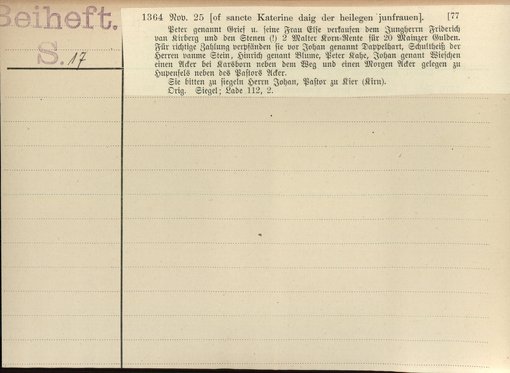 Beiheft.
S. 17
1364 Nov. 25 [of sancte Katerine daig der heilegen junfrauen]. [77
Peter genannt Grief u. seine Frau Else verkaufen dem Jungherrn Friderich
van Kirberg und den Stenen (!) 2 Malter Korn-Rente für 20 Mainzer Gulden.
Für richtige Zahlung verpfänden sie vor Johan genannt Dappelhart, Schultheiß der
Herren vanme Stein, Hinrich genant Blume, Peter Kahe, Johan genant Wieschen
einen Acker bei Karsborn neben dem Weg und einen Morgen Acker gelegen zu
Hupensels neben des Pastors Acker.
Sie bitten zu siegeln Herrn Johan, Pastor zu Kier (Kirn).
Orig. Siegel; Lade 112, 2.